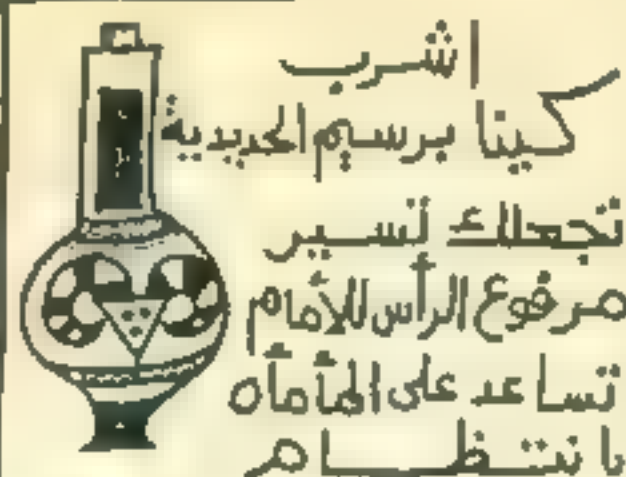 اشرب
كينا برسيم الحديدية
تجعلك تسير
مرفوع الرأس للأمام
تساعد على المأمأه
بانتظام